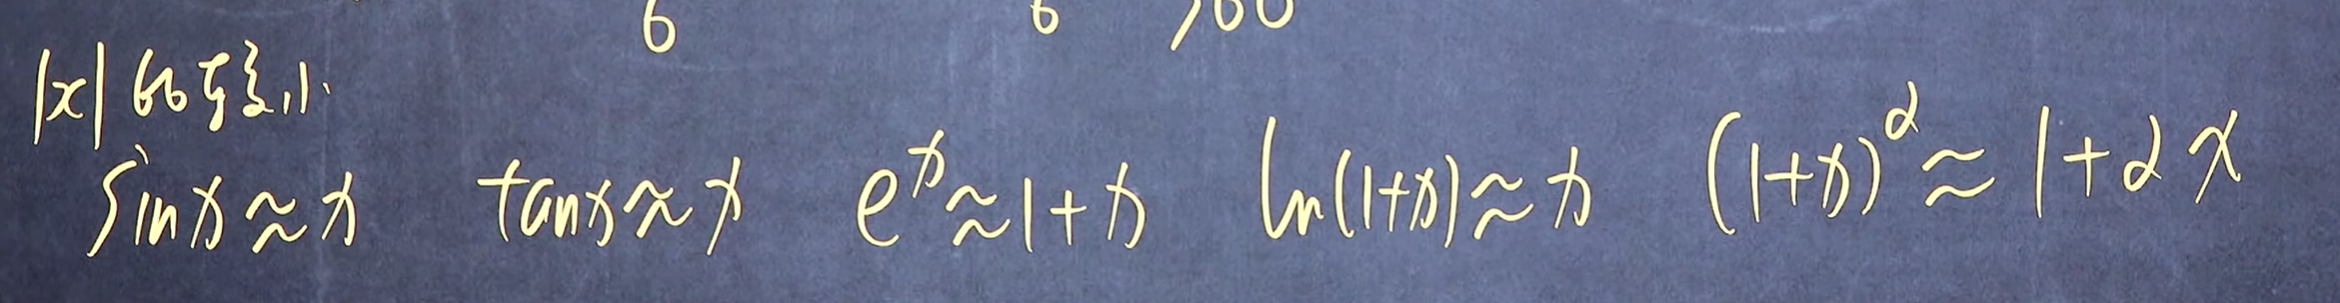 6 6 360
|x| 比较小
sinx≈x tanx≈x e^x≈1+x ln(1+x)≈x (1+x)^α≈1+αx